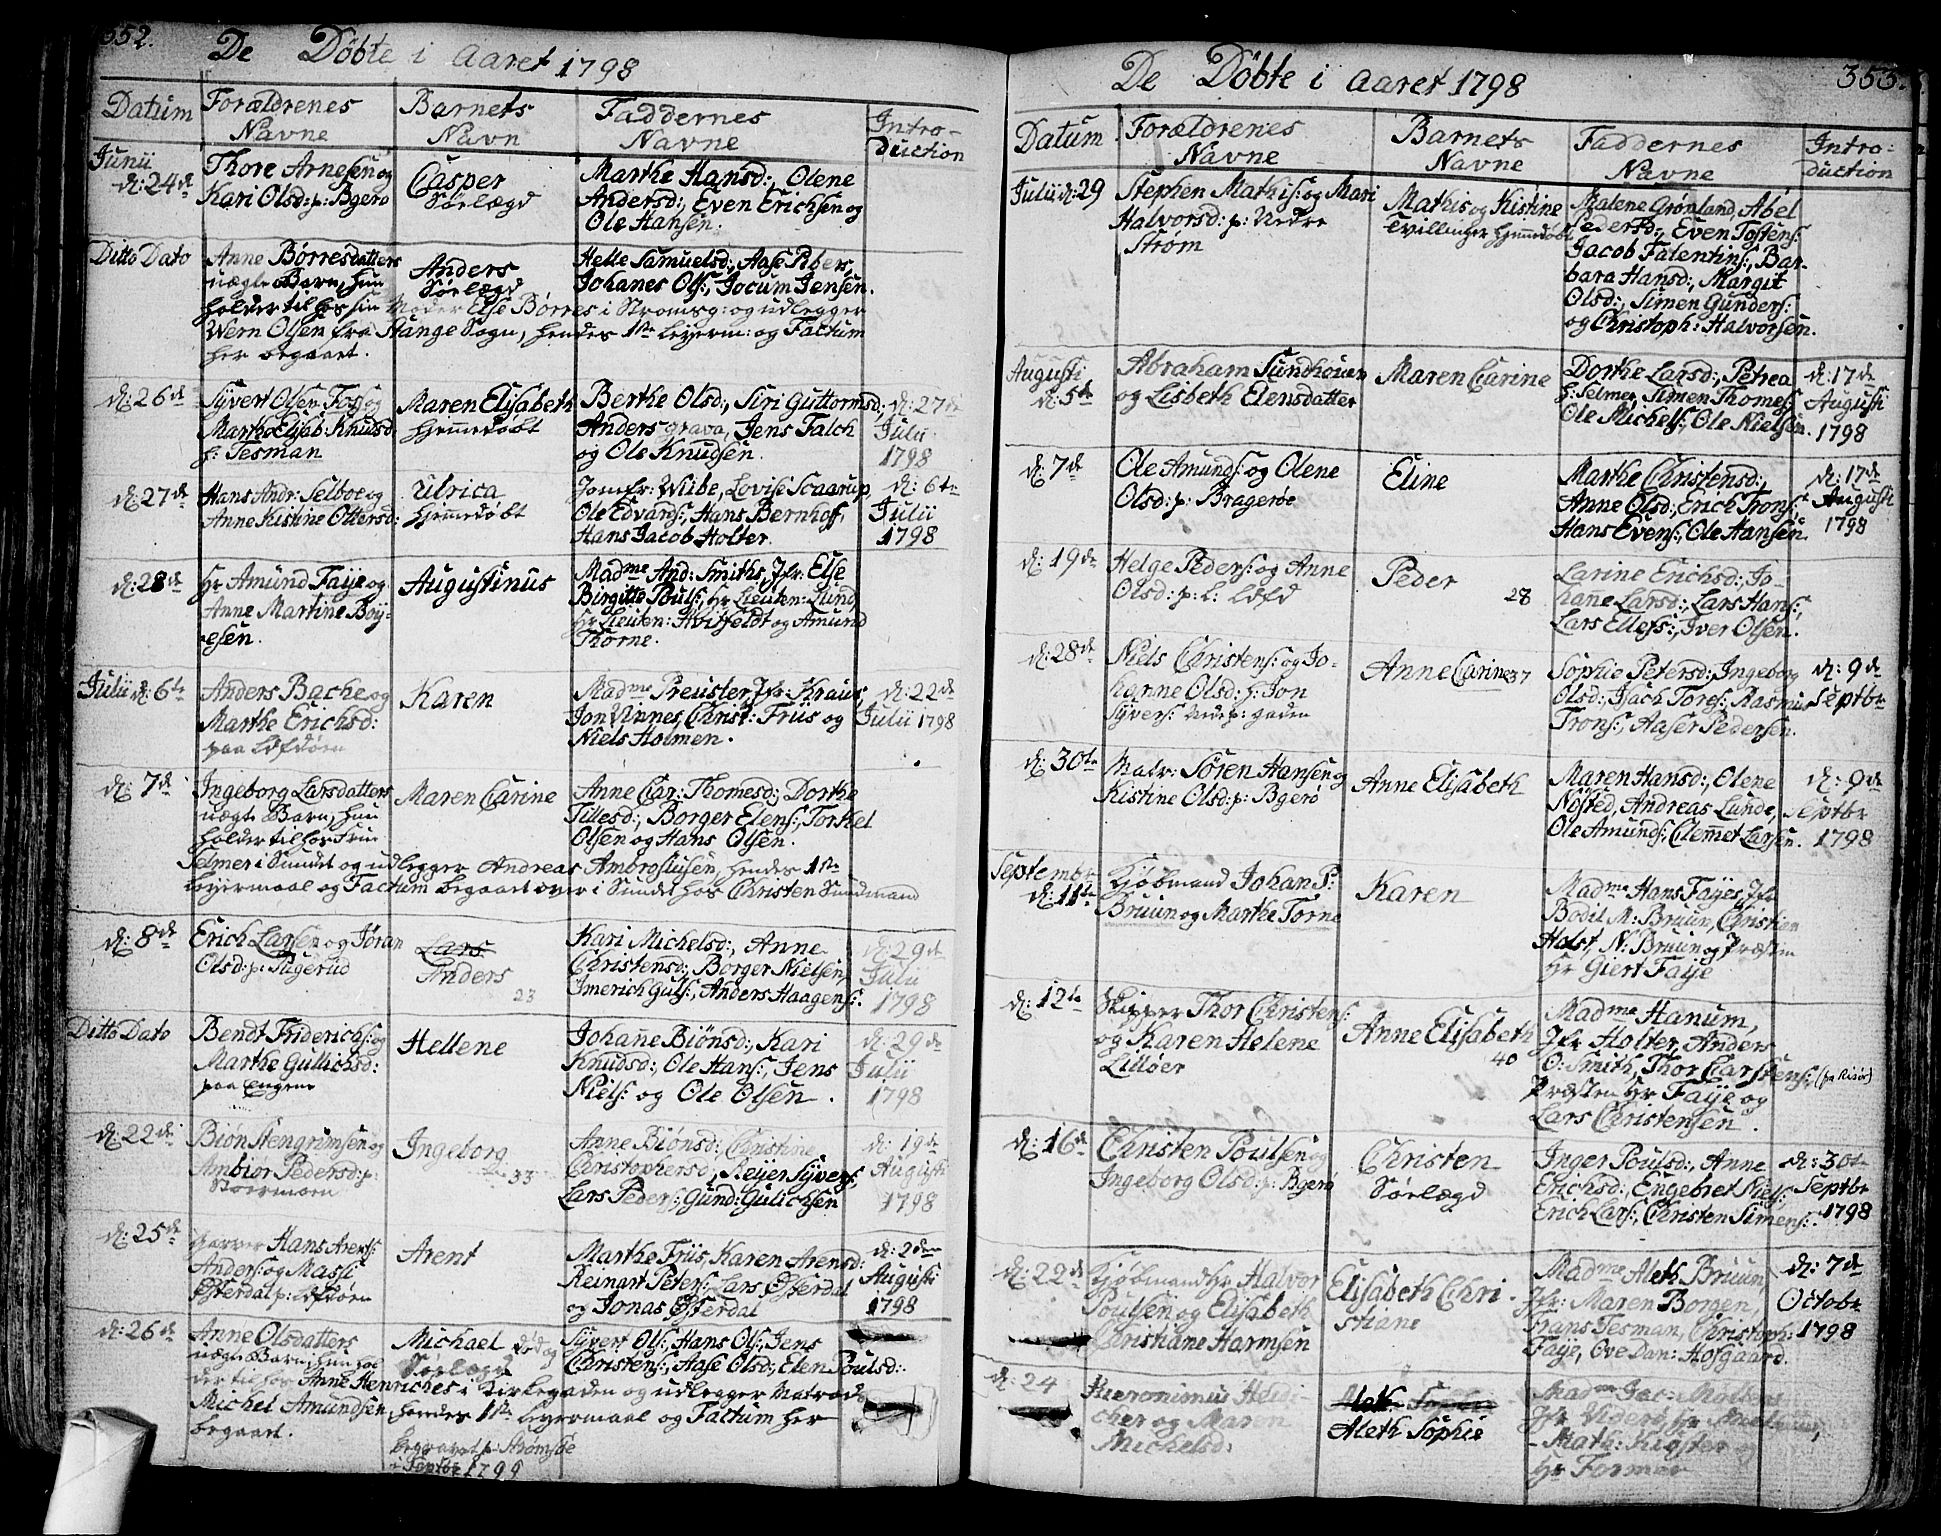 352.
De Döbte i Aaret 1798
Datum
Forældrenes
Navne
Barnets
Navn
Faddernes
Navne
Intro-
duction
Junii
d: 24de
Thore Arnesen og
Kari Olsd: p: Bgerö
Casper
Sörlægd
Marthe Hansd:, Olene
Andersd:, Even Erichsen og
Ole Hansen.
Ditto Dato
Anne Börresdatters
uægte Barn, hun
holder til hos sin Moder Else Börres i Stromsg: og udlegger
Wern Olsen fra Stange Sogn, hendes 1ste Leyerm: og Factum
her begaaet.
Anders
Sörlægd
Helle Samuelsd:, Aase Pibers,
Johanes Ols:, Jocum Jensen.
d: 26de
Syvert Olsen Foss og
Marthe Elisab: Knudsd
h: Tesman
Maren Elisabeth
Hjemedöbt
Berthe Olsd:, Siri Guttormsd:
Anders Grava, Jens Falch
og Ole Knudsen.
d: 27de
Julii
1798
d: 27de
Hans Andr: Selboe og
Anne Kistine Ottersd:
Ulrica
Hjemedöbt
Jomfr: Wibe, Lovise Scaarup,
Ole Edvards:, Hans Bernhoff,
Hans Jacob Holter.
d: 6te
Julii
1798
d: 28de
Hr Amund Faije og
Anne Martine Boij-
esen.
Augustinus
Madme And: Smiths, Jfr: Else
Birgitte Pouls:, Hr Lieuten: Lund,
Hr Lieuten: Hvitfeldt og Amund
Thorne.
Julii d: 6te
Anders Bache og
Marthe Erichsd:
paa Löfdören
Karen
Madme Preuster, Jfr: Kraus,
Jon Vinnes, Christ: Friis og
Niels Holmen.
d: 22de
Julii 1798
d: 7de
Ingeborg Larsdatters
uægte Barn, hun
holder til hos Frue
Selmer i Sundet og udlegger Andreas Ambrosiusen, hendes 1ste
Leyermaal og Factum begaaet over i Sundet hos Christen Sundmand
Maren Carine
Anne Car: Thomesd:, Dorthe
Tillesd:, Borger Elens:, Torkel
Olsen og Hans Olsen.
d: 8de
Erich Larsen og Jöran
Olsd: p: Pugerud
Lars
Anders
23
Kari Michelsd:, Anne
Christensd:, Borger Nielsen,
Imerich Guls:, Anders Haagens:
d: 29de
Julii
1798
Ditto Dato
Bendt Friderichs: og
Marthe Gullichsd:
paa Engene
Hellene
Johañe Biönsd:, Kari
Knudsd:, Ole Hans:, Jens
Niels: og Ole Olsen.
d: 29de
Julii
1798
d: 22de
Biön Stengrimsen og
Ambior Pedersd: p:
Stormoen
Ingeborg
33
Anne Biönsd: Christine
Christophersd:, Reijer Syvers:,
Lars Peders:, Gund: Gulichsen
d: 19de
Augusti
1798
d: 25de
Garver Hans Arents:
Anders: og Massi
Österdal p: Löfdören
Arent
Marthe Friis, Karen Arensd:
Reinert Peters:, Lars Österdal
og Jonas Österdal
d: 2den
Augusti
1798
d: 26de
Anne Olsdatters
uægte Barn, hun hol-
der til hos Anne Henriches i Kirkegaden og udlegger Matrods
Michel Amundsen, hendes 1ste Leyermaal og Factum her
begaaet.
Michael död og
Sörlægd
Syvert Ols:, Hans Ols:, Jens
Christens:, Aase Olsd:, Elen Poulsd:
begravet p: Strömsöe
i Septbr 1799
353.
De Döbte i Aaret 1798
Datum
Forældrenes
Navne
Barnets
Navne
Faddernes
Navne
Intro-
duction
Julii d: 29
Stephen Mathis: og Mari
Halvorsd: p: Nedre
Ström
Mathis og Kistine
Tvillinger Hjemedöbt
Malene Grönland, Abel
Pedersd:, Even Tostens:
Jacob Falentins:, Bar-
bara Hansd:, Margit
Olsd:, Simen Gunders:
og Christoph: Halvorsen.
Augusti
d: 5te
Abraham Sundhouen
og Lisbeth Elensdatter
Maren Carine
Dorthe Larsd:, Petrea
h: Selmer, Simen Thomes:,
Ole Michels:, Ole Nielsen.
d: 17de
Augusti
1798
d: 7de
Ole Amunds: og Olene
Olsd: p: Bragerøe
Eline
Marthe Christensd:,
Anne Olsd:, Erich Trons:,
Hans Evens:, Ole Hansen.
d: 17de
Augusti
1798
d: 19de
Helge Peders: og Anne
Olsd: p: L: Löfd
Peder
28
Larine Erichsd:, Jo-
hañe Larsd:, Lars Hans:,
Lars Ellefs:, Iver Olsen.
d: 28de
Niels Christens: og Jo-
hanne Olsd: h: Jon
Syvers: Nede p: gaden
Anne Carine
37
Sophie Petersd:, Ingeborg
Olsd:, Isach Tores:, Rasmus
Trons:, Aaser Pedersen.
d: 9de
Septbr
d: 30te
Matr: Sören Hansen og
Kistine Olsd: p: Bgerö
Anne Elisabeth
Maren Hansd:, Olene
Nösted, Andreas Lunde,
Ole Amunds:, Clemet Larsen.
d: 9de
Septbr
1798
Septembr
d: 11te
Kjöbmand Johan P:
Bruun og Marthe Torne
Karen
Madme Hans Fayes, Jfr
Bodil M: Bruun, Christian
Holst, N: Bruun og Præsten
Hr Giert Faye
d: 12te
Skipper Thor Christens:
og Karen Helene
Lillöer
Anne Elisabeth
40
Madme Hanum,
Jfr Holter, Anders
O: Smith, Thor Carstens: (fra Risör)
Præsten Hr Faye og
Lars Christensen.
d: 16de
Christen Poulsen og
Ingeborg Olsd: p: Bgerö
Christen
Sörlægd
Inger Poulsd:, Anne
Erichsd:, Engebret Niels:,
Erich Lars:, Christen Simens:
d: 30te
Septbr
1798
d: 22de
Kjöbmand Hr Halvor
Poulsen og Elisabeth
Christiane Harmsen
Elisabeth Chri-
stiane
Madme Aleth Bruun,
Jfr: Maren Borgen,
Frans Tesman, Christoph:
Faye, Ove Dan: Hofgaard.
d: 7de
Octobr
1798
d: 24
Hieronimus Held-
cher og Maren
Michelsd:
Aleth Sophie
Aleth Sophie
Madme Jac: Moltzau
Jfr Viderö, Hr
Math: Kigster og
Hr Forman